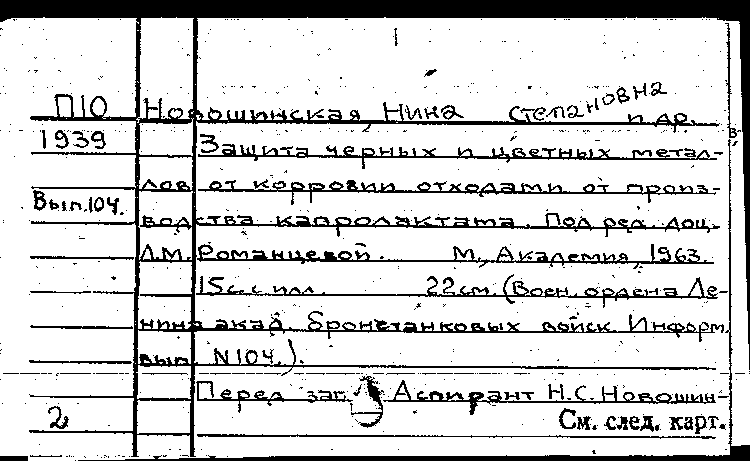 П10 Новошинская, Нина Степановна
и др.
1939 Защита черных и цветных метал-
лов от коррозии отходами от произ-
Вып.104. водства капролактама. Под ред. доц.
Л.М. Романцевой. М., Академия, 1963.
15с. с илл. 22см. (Воен. ордена Ле-
нина акад. бронетанковых войск. Информ.
вып. N104.).
Перед заг. Аспирант Н.С. Новошин-
2 См. след. карт.